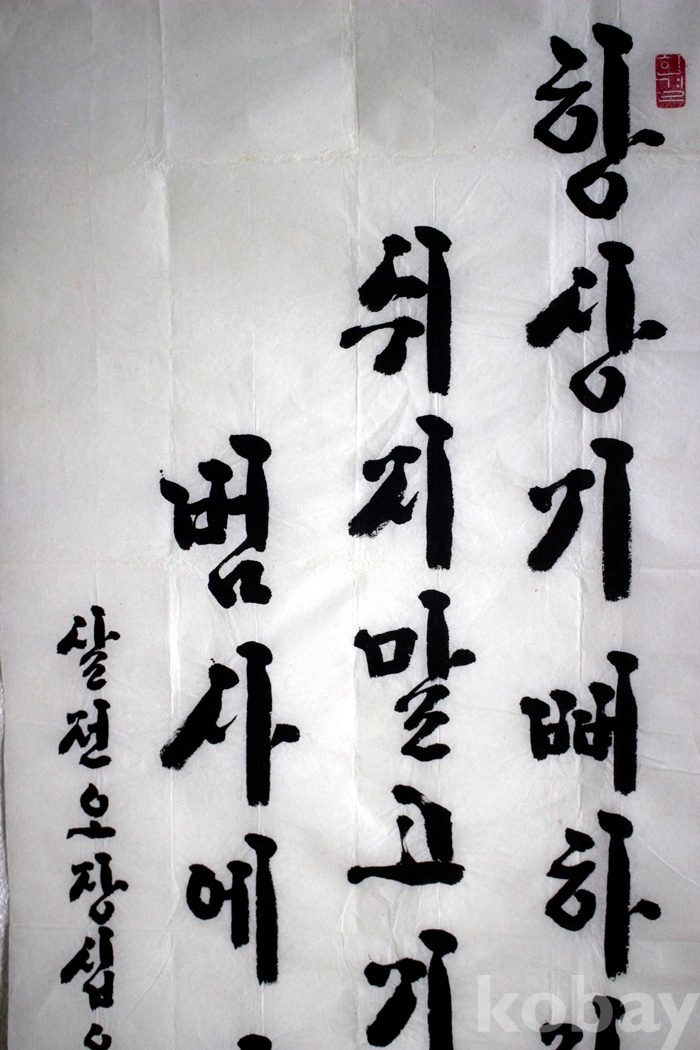 항상기뻐하
쉬지말고기
범사에
살전오장십
kobay